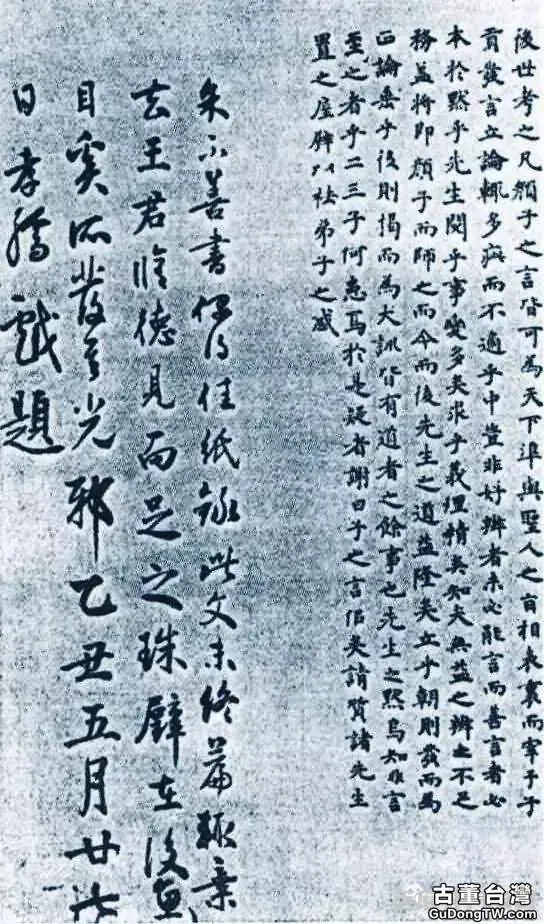 後世考之凡顏子之言皆可為天下準與聖人之旨相表裏而宰予子
貢發言立論輒多疵而不適乎中豈非好辯者未必能言而善言者必
本於默乎先生閱乎事變多矣求乎義理精矣知夫無益之辯之不足
務益將即顏子而師之而今而後先生之道益隆矣立乎朝則發而為
正論垂乎後則揭而為大訓皆有道者之餘事也先生之默烏知非言
至之者乎二三子何惑焉於是疑者謝曰子之言信矣請質諸先生
置之座壁以祛弟子之惑
余不善書偶得佳紙錄此文未終篇輒棄
去王君脩德見而足之珠璧在後魚
目奚所發其光邪乙丑五月廿六
日孝孺戲題
古董台灣
GuDongTW.com